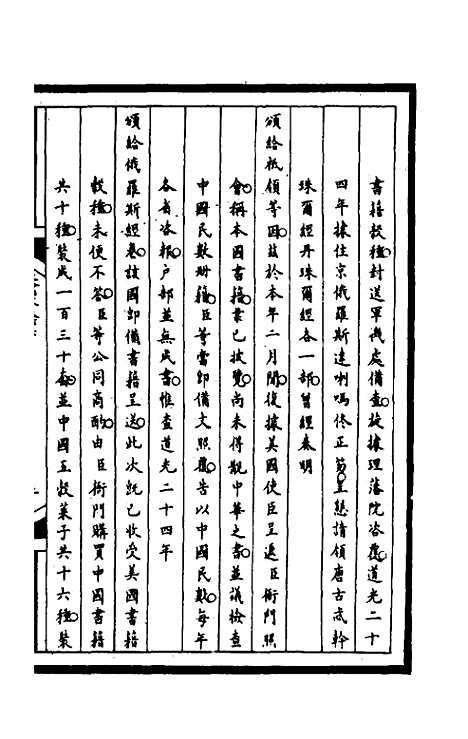 書籍穀種封送軍機處備查旋據理藩院咨覆道光二十
四年據住京俄羅斯達喇嘛佟正笏呈懇請領唐古忒幹
珠爾經丹珠爾經各一部曾經奏明
頒給祇領等因茲於本年二月間復據美國使臣呈遞臣衙門照
會稱本國書籍業已披覽尚未得觀中華之書並議檢查
中國民數冊籍臣等當即備文照覆告以中國民數每年
各省咨報戶部並無民書惟查道光二十四年
頒給俄羅斯經卷該國即備書籍呈送此次既已收受美國書籍
穀種未便不答臣等公同商酌由臣衙門購買中國書籍
共十種裝成一百三十套並中國五穀菜子共十六種裝